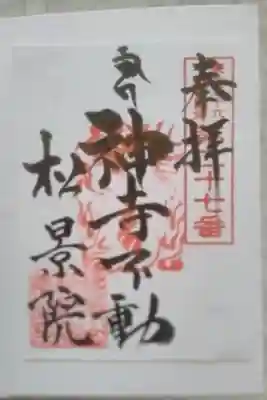 奉拝
十七番
神寺不動
松景院